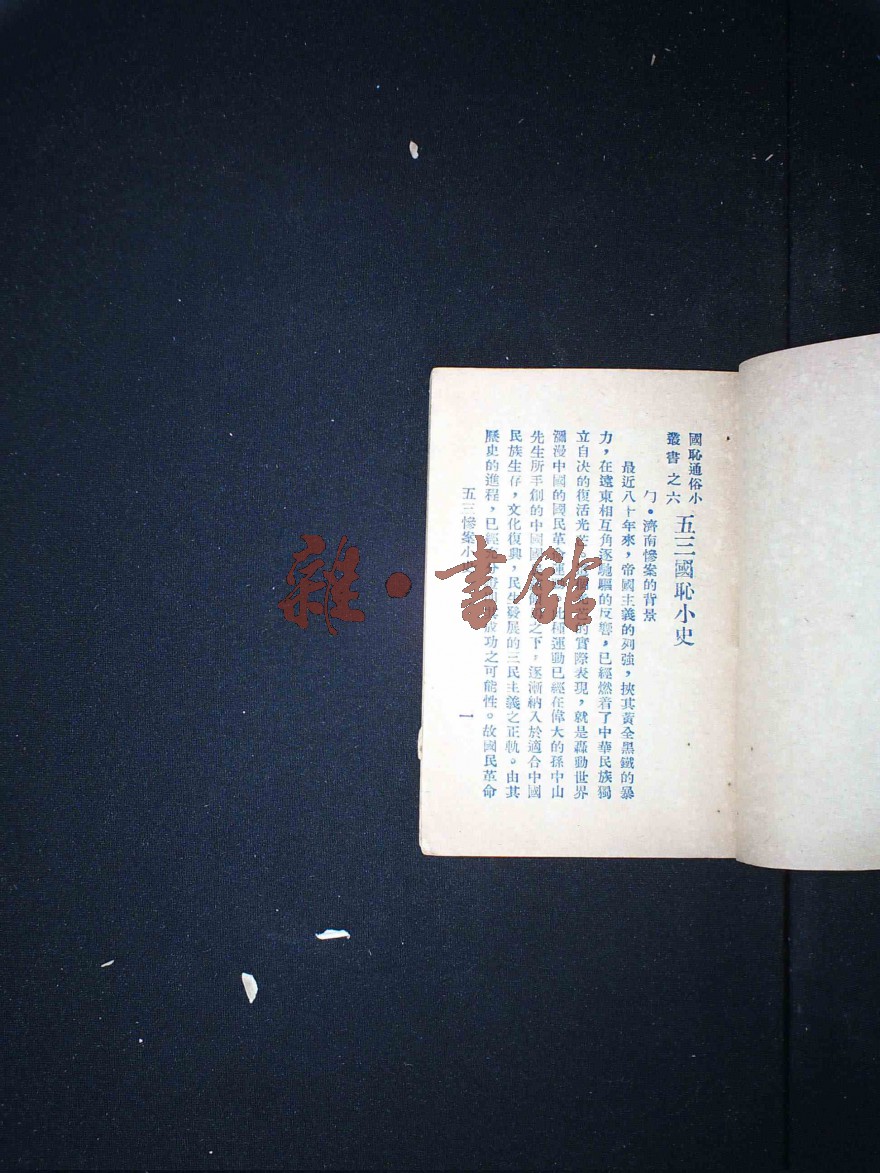 國恥通俗小
叢書之六
五三國恥小史
勹·濟南慘案的背景
最近八十年來，帝國主義的列強，挾其黃金黑鐵的暴
力，在遠東相互角逐馳驅的反響，已經燃着了中華民族獨
立自决的復活光 的實際表現，就是轟動世界
瀰漫中國的國民革 種運動已經在偉大的孫中山
先生所手創的中國國 之下，逐漸納入於適合中國
民族生存，文化復興，民生發展的三民主義之正軌。由其
歷史的進程，已經 成功之可能性。故國民革命
五三慘案小
一
雜·書館